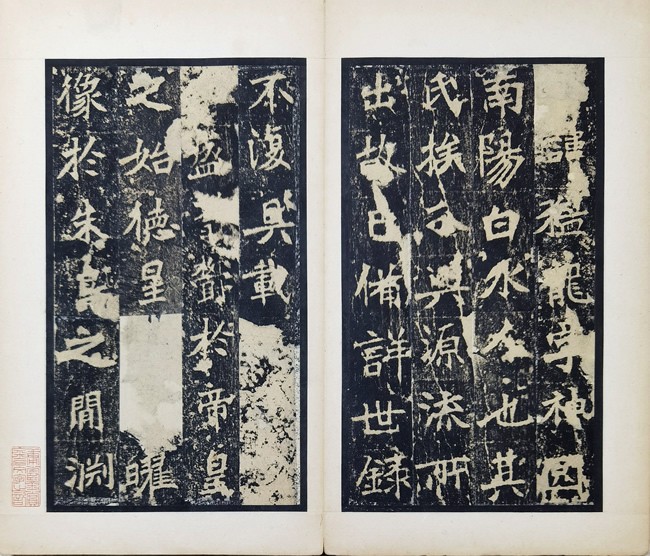 諱猛龍字神冏
南陽白水人也其
氏族分興源流所
出故已備詳世録
不復具載
盛蕤於帝皇
之始德星曜
像於朱鳥之間淵